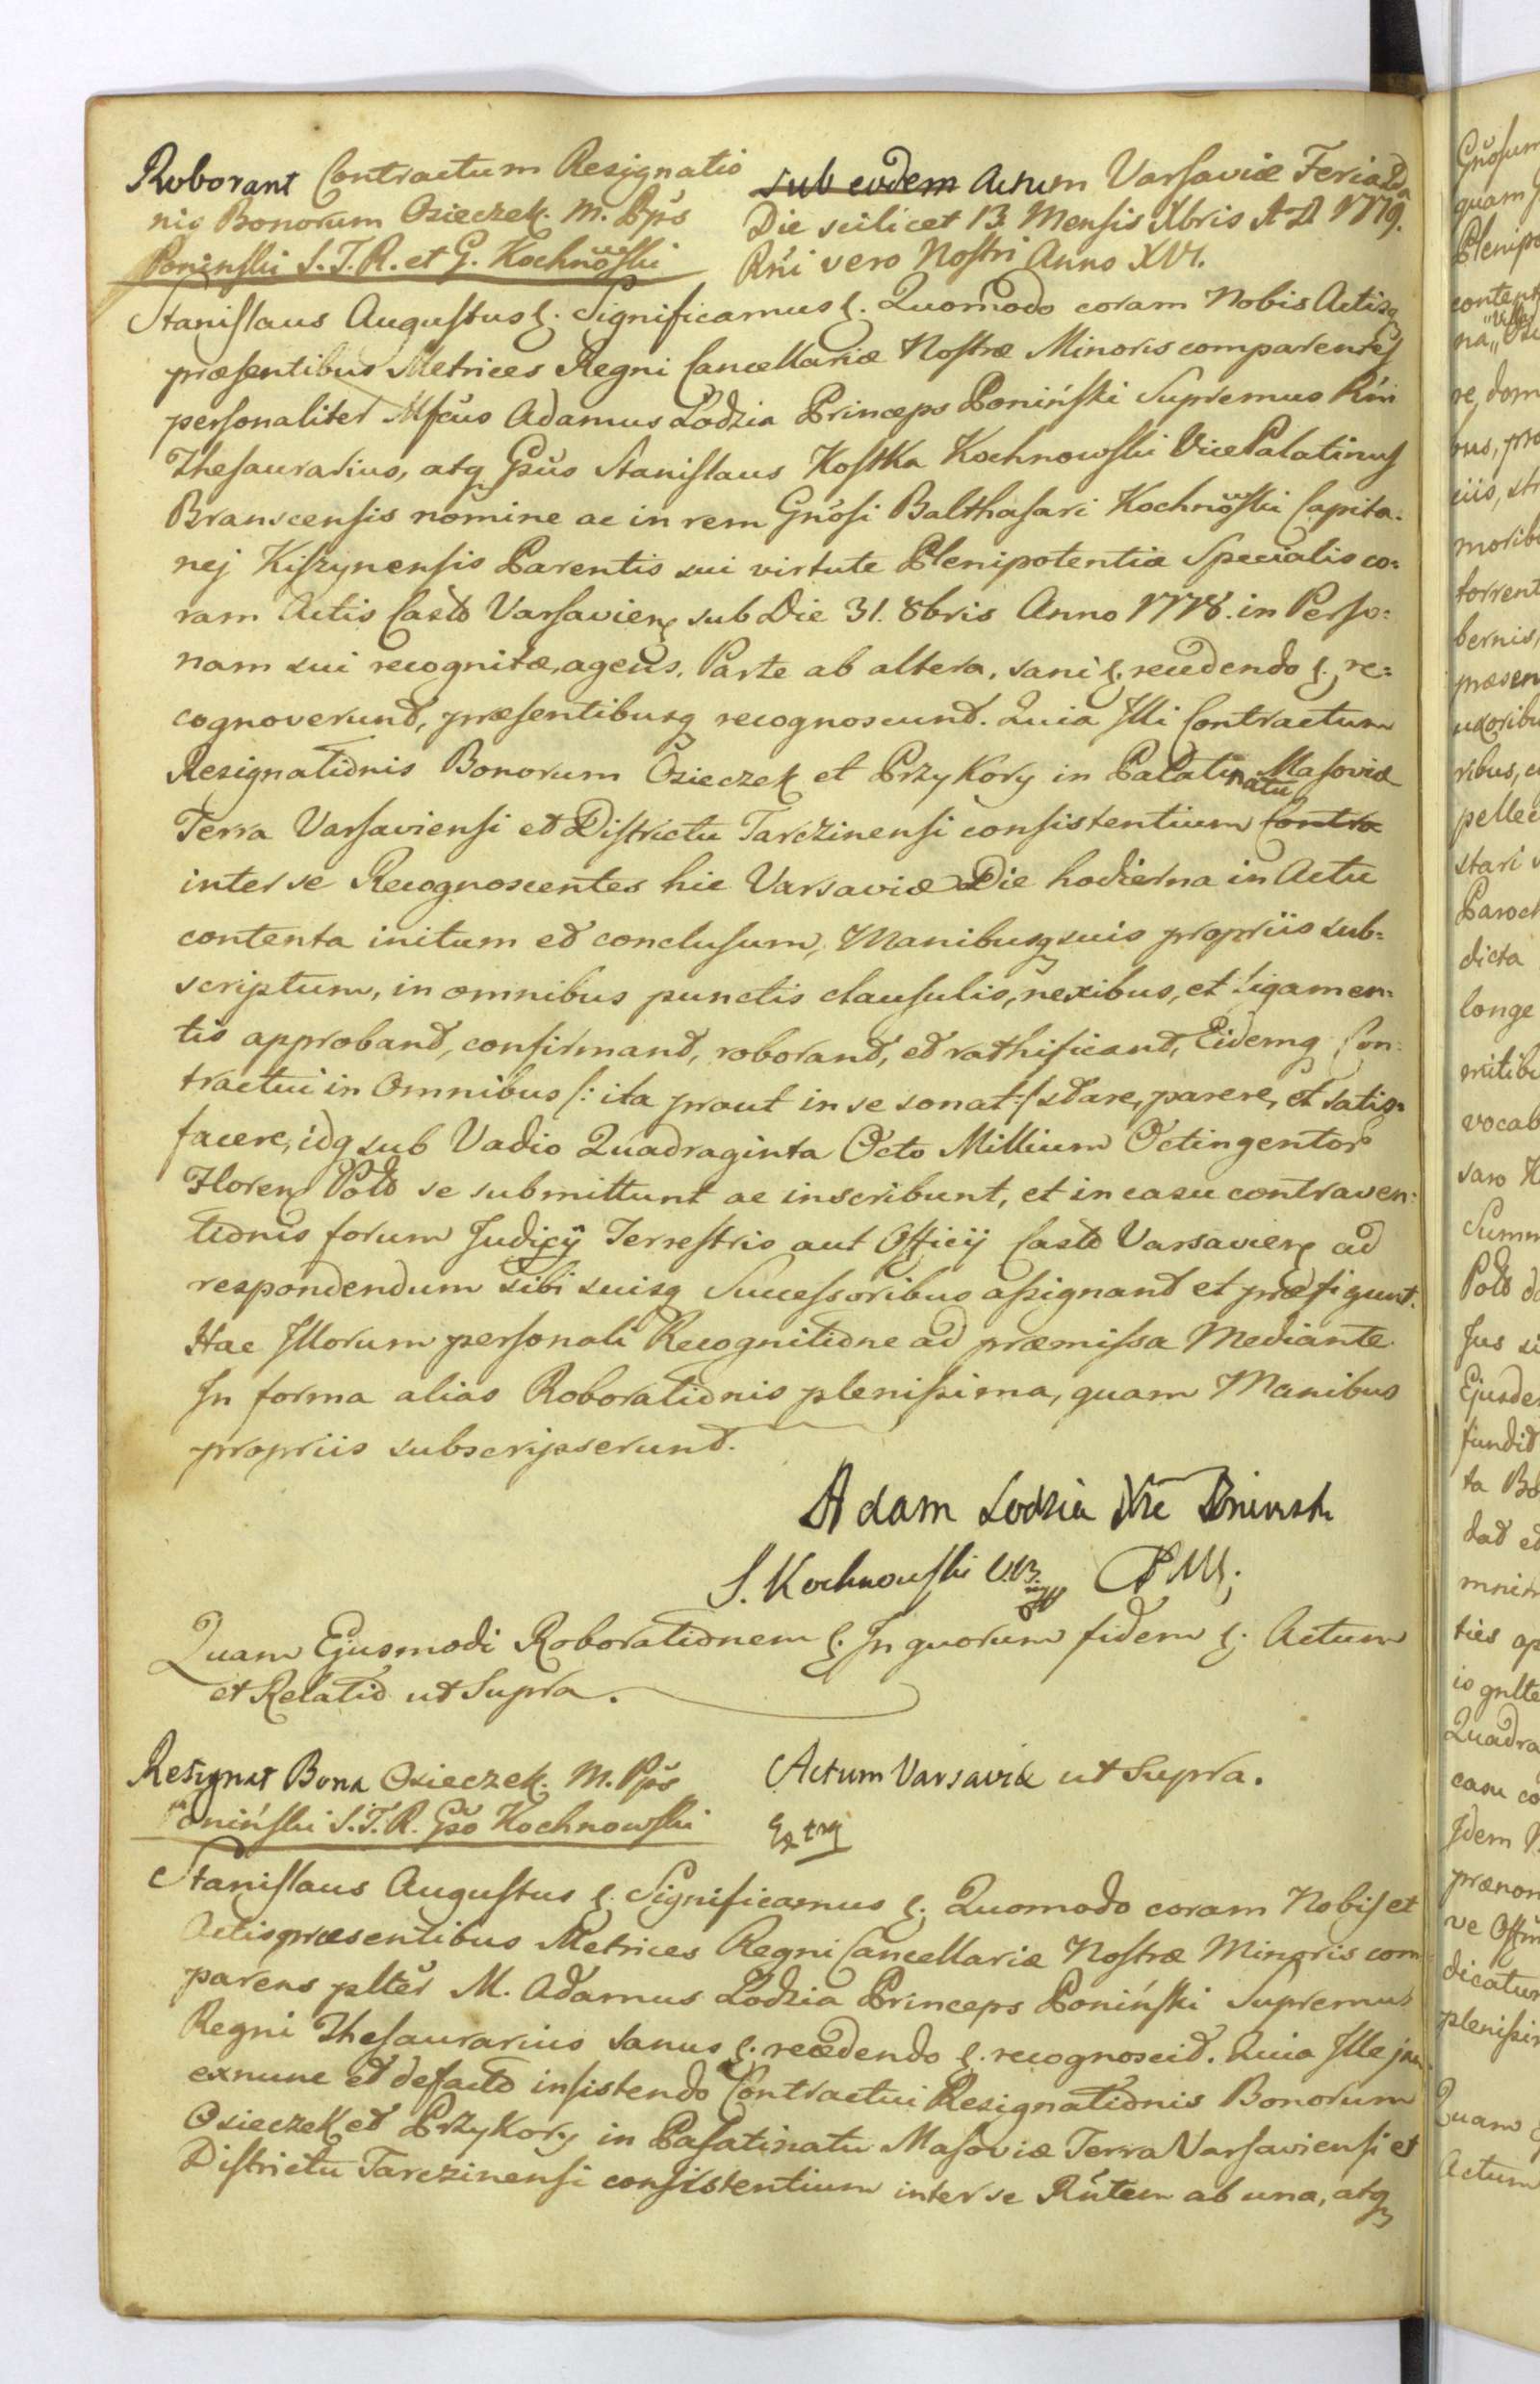 Roborant Contractum Resignatio
nis Bonorum Osieczek. M. Pps
Poninski S.T.R. et G. Kochnowski
sub eodem Actum Varsaviæ Feria 2da
Die scilicet 13. Mensis Xbris A D 1779.
Rni vero Nostri Anno XVI.
Stanislaus Augustus &. Significamus &. Quomodo coram Nobis Actisq
præsentibus Metrices Regni Cancellariæ Nostræ Minoris comparentes
personaliter Mfcus Adamus Lodzia Princeps Poniński Supremus Rni
Thesaurarius, atq Gsus Stanislaus Kostka Kochnowski Vice Palatinus
Branscensis nomine ac in rem Gnosi Balthasari Kochnowski Capita:
nej Kiszynensis Parentis sui virtute Plenipotentiæ Specialis co:
ram Actis Castr Varsavien sub Die 31. 8bris Anno 1778. in Perso:
nam sui recognitæ, agens. Parte ab altera, sani &. recedendo &. re:
cognoverunt, præsentibusq recognoscunt. Quia Illi Contractum
Resignationis Bonorum Osieczek et Przykory in Palatinatu Masoviæ
Terra Varsaviensi et Districtu Tarczinensi consistentium Contra
inter se Recognoscentes hic Varsaviæ Die hodierna in Actu
contenta initum et conclusum, Manibusq suis propriis sub:
scriptum, in omnibus punctis clausulis, nexibus, et ligamen:
tis approbant, confirmant, roborant, et rathificant, Eidemq Con:
tractui in Omnibus /: ita prout in se sonat :/ stare, parere, et satis:
facere, idq sub Vadio Quadraginta Octo Millium Octingentor
Floren Pold se submittunt ac inscribunt, et in casu contraven:
tionis forum Judicij Terrestris aut Officij Castr Varsavien ad
respondendum sibi suisq Successoribus assignant et præfigunt.
Hac Illorum personali Recognitione ad præmissa Mediante.
In forma alias Roborationis plenissima, quam Manibus
propriis subscripserunt.
Adam Lodzia
S. Kochnowski V.B.
Quam Ejusmodi Roborationem &. In quorum fidem &. Actum
et Relatio ut Supra.
Resignat Bona Osieczek. M. Pps
Poniński S.T.R. Gso Kochnowski
Actum Varsaviæ ut Supra.
Stanislaus Augustus &. Significamus &. Quomodo coram Nobis et
Actis præsentibus Metrices Regni Cancellariæ Nostræ Minoris com
parens plter M. Adamus Lodzia Princeps Poniński Supremus
Regni Thesaurarius sanus &. recedendo &. recognoscit. Quia Ille jam
exnunc et de facto insistendo Contractui Resignationis Bonorum
Osieczek et Przykory in Palatinatu Masoviæ Terra Varsaviensi et
Districtu Tarczinensi consistentium inter se Rntem ab una, atq